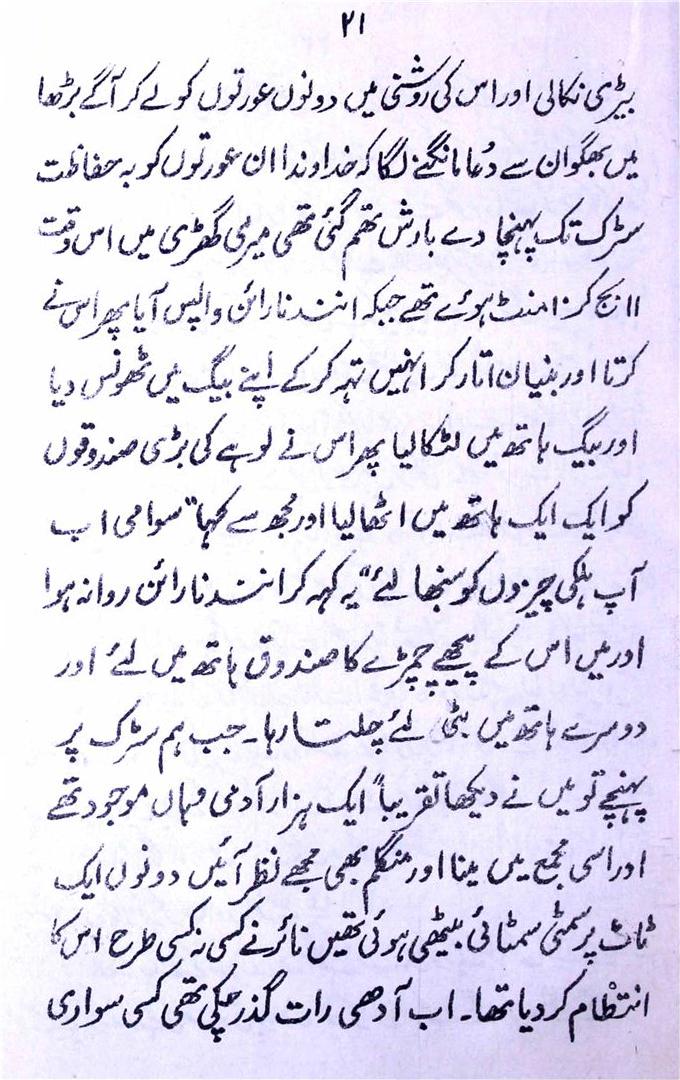 ۲۱
بیڑی نکالی اور اس کی روشنی میں دونوں عورتوں کو لے کر آگے بڑھا
میں بھگوان سے دُعا مانگنے لگا کہ خداوندا ان عورتوں کو بہ حفاظت
سڑک تک پہنچا دے بارش تھم گئی تھی میری گھڑی میں اس وقت
۱۱ بج کر ۱۰ منٹ ہوئے تھے جبکہ انند نارائن واپس آیا پھر اس نے
کرتا اور بنیان اتار کر انہیں تہہ کرکے اپنے بیگ میں ٹھونس دیا
اور بیگ ہاتھ میں لٹکا لیا پھر اس نے لوہے کی بڑی صندوقوں
کو ایک ایک ہاتھ میں اٹھا لیا اور مجھ سے کہا "سوامی اب
آپ ہلکی چیزوں کو سنبھالئے" یہ کہہ کر انند نارائن روانہ ہوا
اور میں اس کے پیچھے چمڑے کا صندوق ہاتھ میں لئے اور
دوسرے ہاتھ میں بتی لئے چلتا رہا۔ جب ہم سڑک پر
پہنچے تو میں نے دیکھا تقریباً ایک ہزار آدمی وہاں موجود تھے
اور اسی مجمع میں مینا اور منگلم بھی مجھے نظر آئیں دونوں ایک
ٹاٹ پر سمٹی سمٹائی بیٹھی ہوئی تھیں نائر نے کسی نہ کسی طرح اس کا
انتظام کر دیا تھا۔ اب آدھی رات گذر چکی تھی کسی سواری